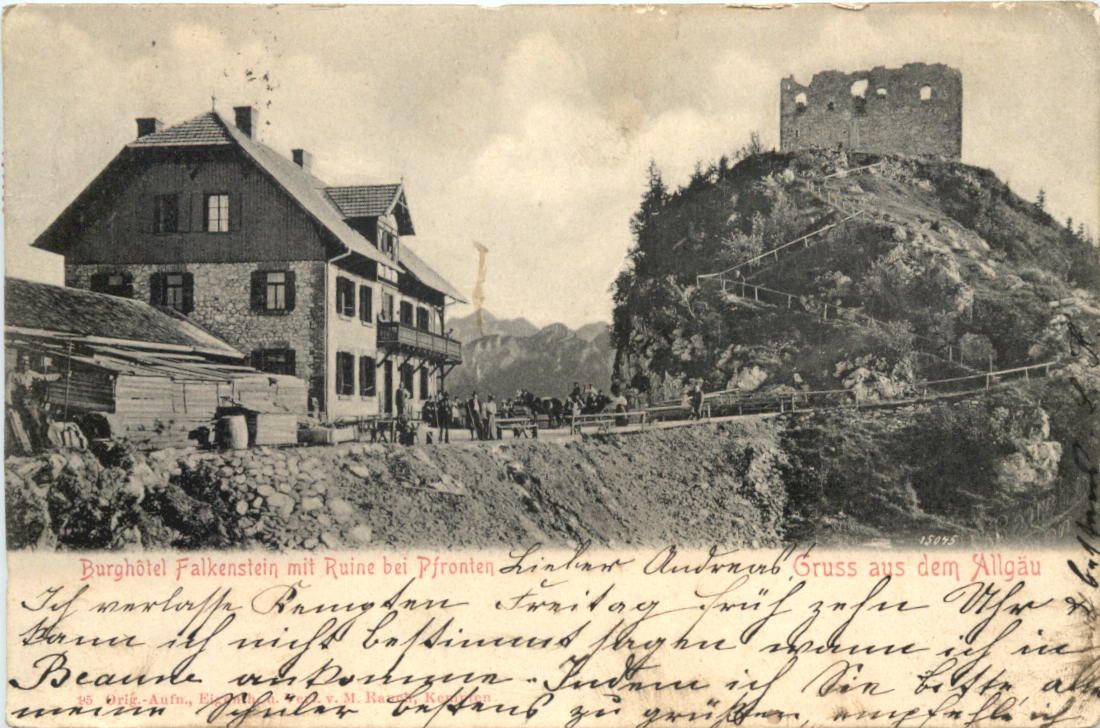 15045
Burghôtel Falkenstein mit Ruine bei Pfronten Lieber Andreas, Gruss aus dem Allgäu
Ich verlasse Kempten Freitag früh zehn Uhr &
kann ich nicht bestimmt sagen wann ich in
Beaune ankomme. Indem ich Sie bitte alle
95 Orig.-Aufn., Eigenth. u. Verl. v. M. Rauch, Kempten
meine Schüler bestens zu grüßen, empfehle ich